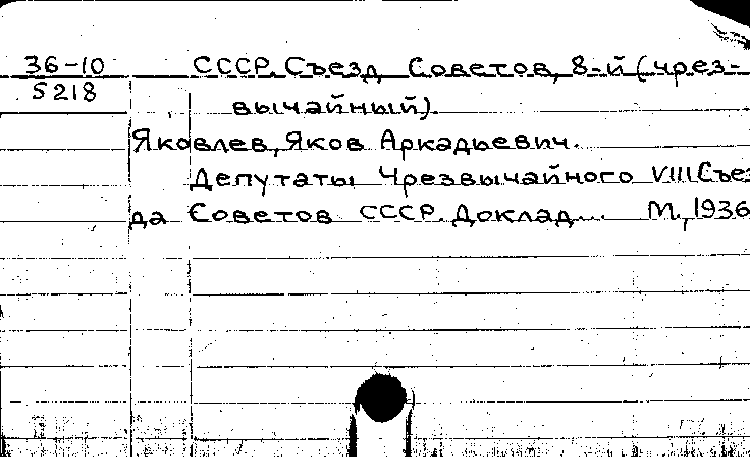 36-10 СССР. Съезд Советов, 8-й (чрез-
5218 вычайный).
Яковлев, Яков Аркадьевич.
Депутаты Чрезвычайного VIII Съез
да Советов СССР. Доклад... М., 1936